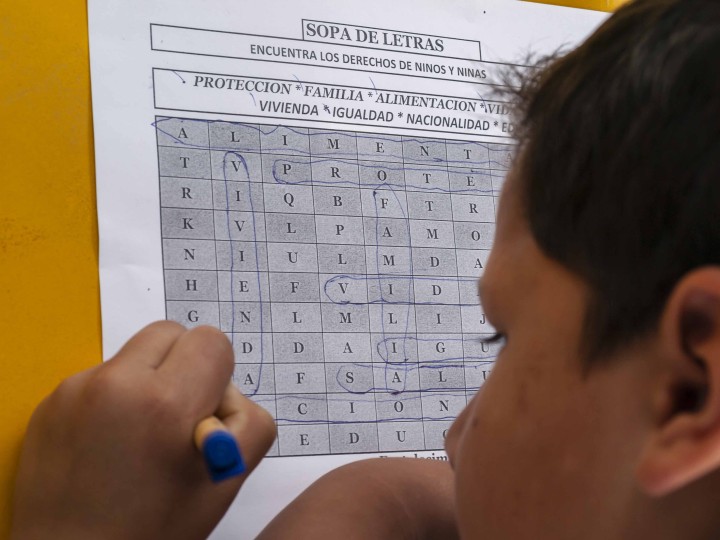 SOPA DE LETRAS
ENCUENTRA LOS DERECHOS DE NINOS Y NINAS
PROTECCION * FAMILIA * ALIMENTACION *
VIVIENDA * IGUALDAD * NACIONALIDAD *
A L I M E N T
T V P R O T E
R I Q B F T R
K V L P A M O
N I U L M D A
H E F V I D
G N L M L I J
D D A I G U
A F S A L
C I O N
E D U